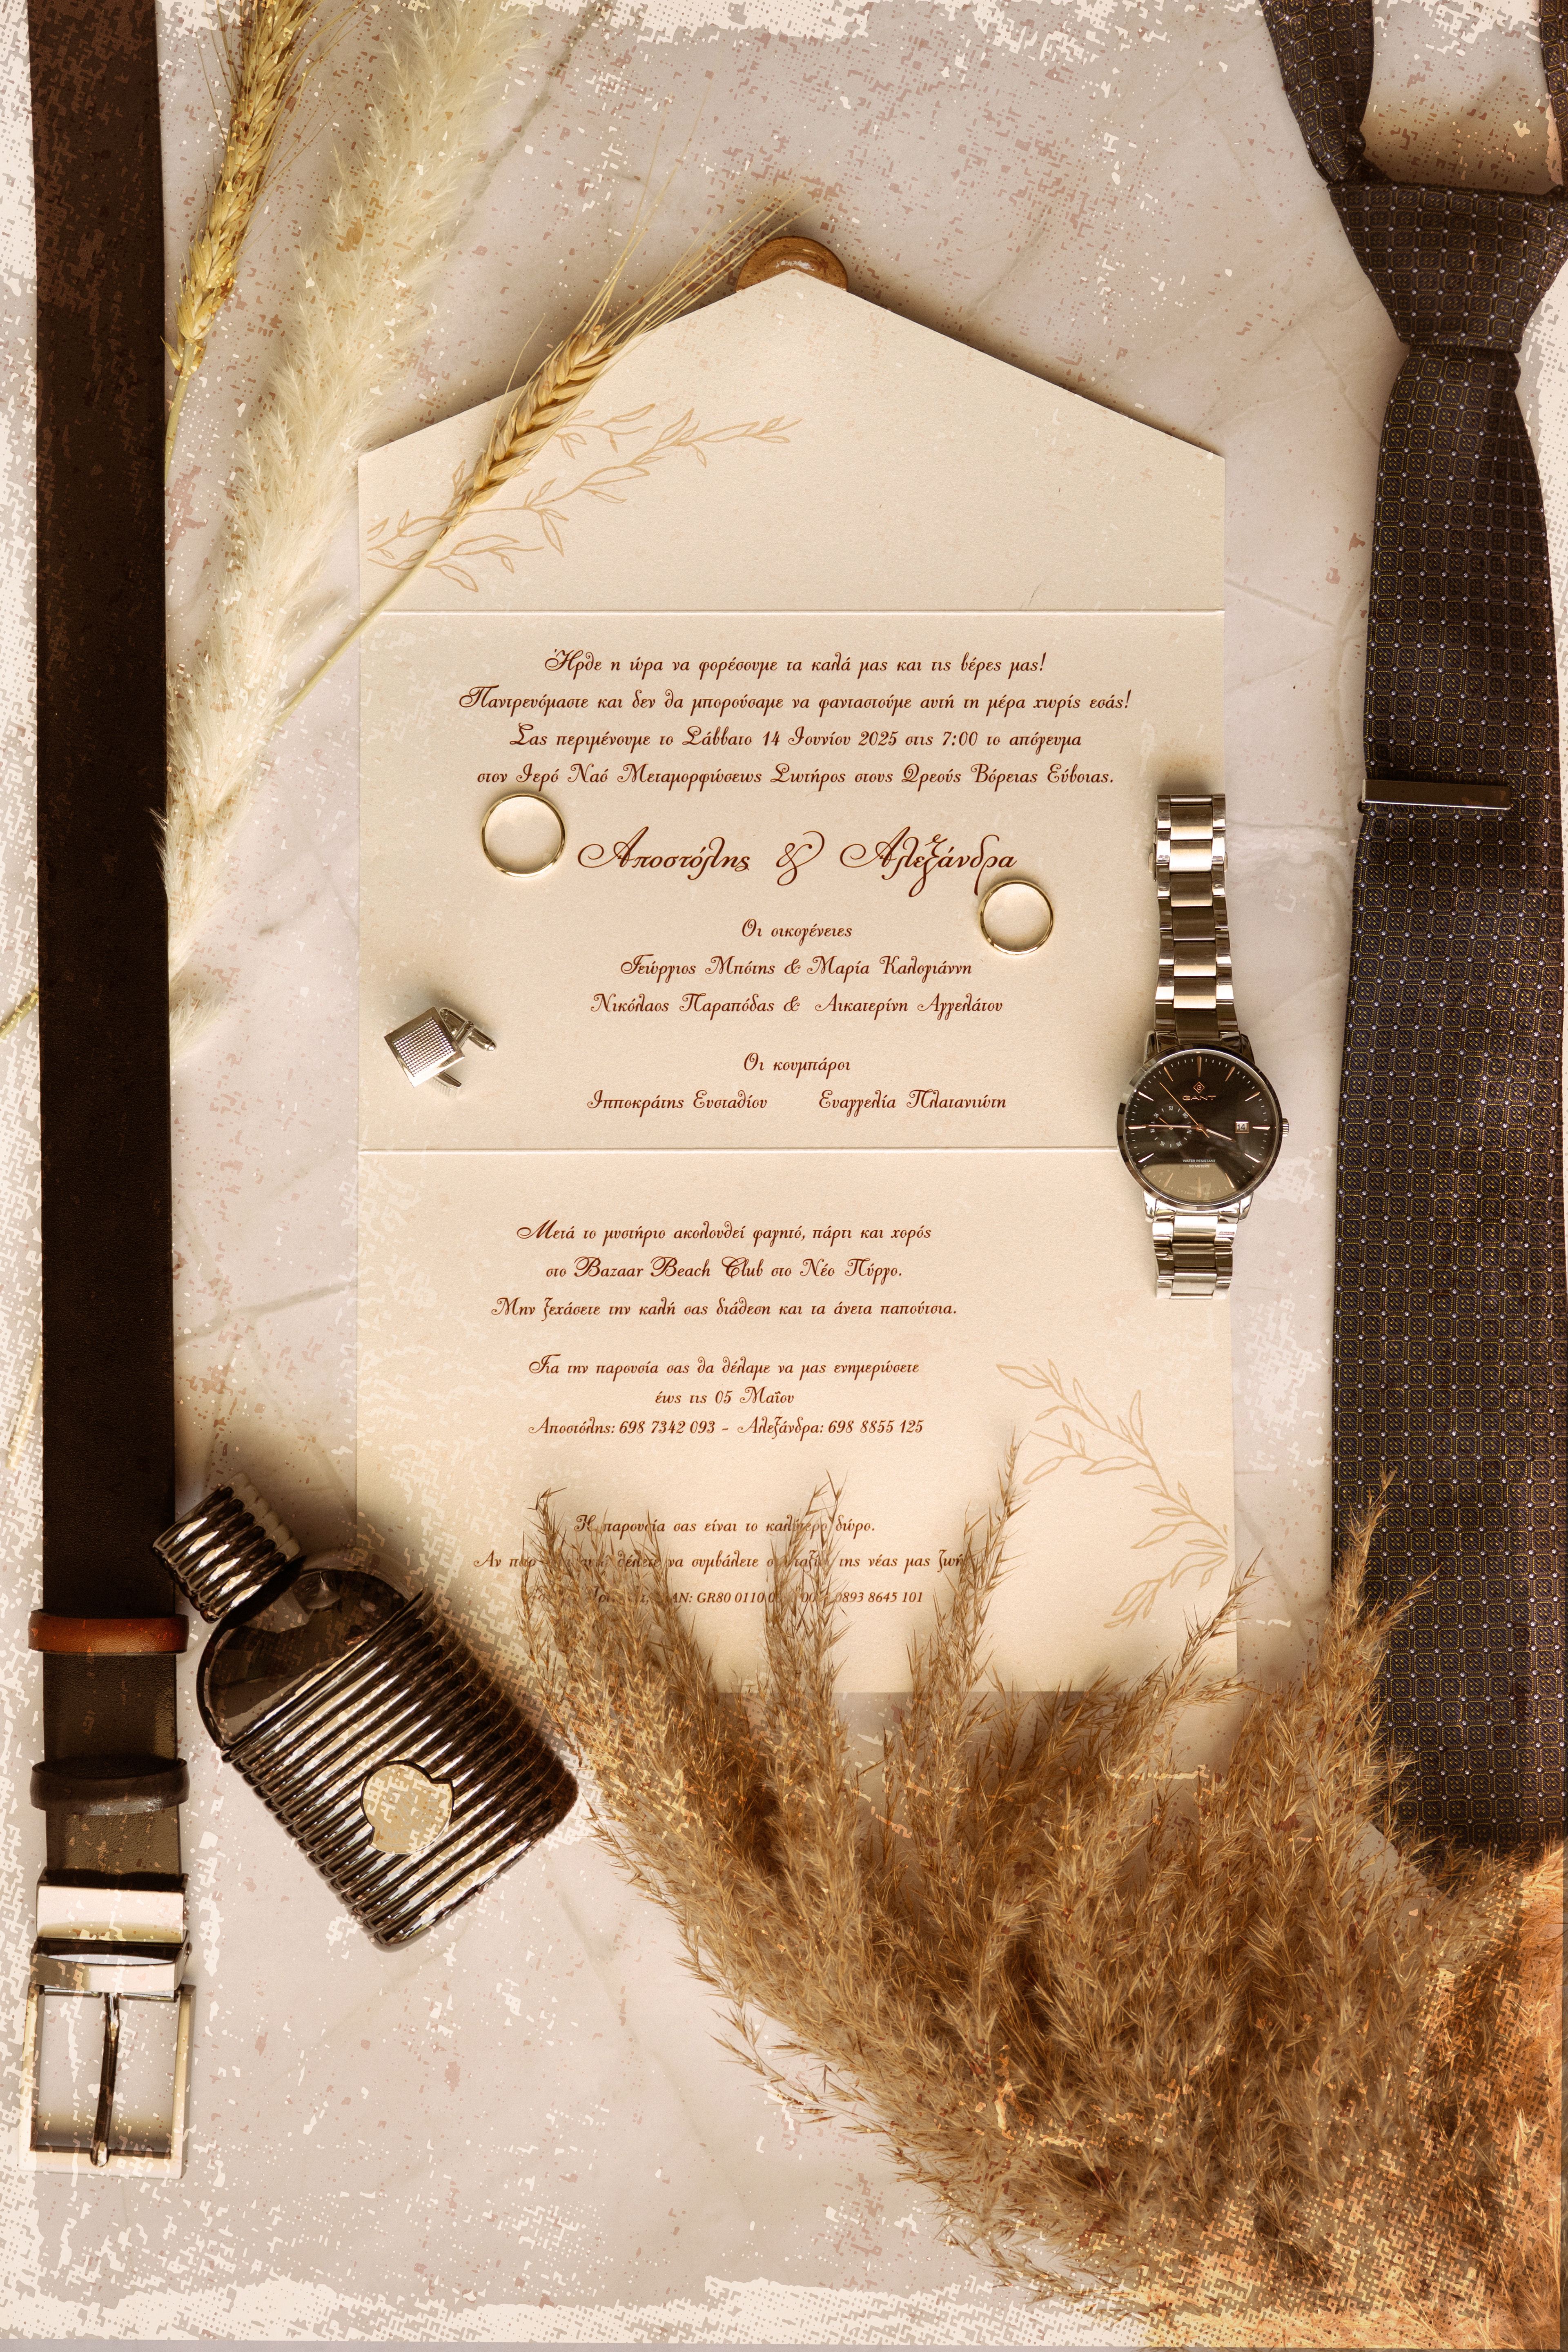 Ήρθε η ώρα να φορέσουμε τα καλά μας και τις βέρες μας!
Παντρευόμαστε και δεν θα μπορούσαμε να φανταστούμε αυτή τη μέρα χωρίς εσάς!
Σας περιμένουμε το Σάββατο 14 Ιουνίου 2025 στις 7:00 το απόγευμα
στον Ιερό Ναό Μεταμορφώσεως Σωτήρος στους Ωρεούς Βόρειας Εύβοιας.
Αποστόλης & Αλεξάνδρα
Οι οικογένειες
Γεώργιος Μπότης & Μαρία Καλογιάννη
Νικόλαος Παραπόδας & Αικατερίνη Αγγελάτου
Οι κουμπάροι
Ιπποκράτης Ευσταθίου Ευαγγελία Πλατανιώτη
GANT
14
WATER RESISTANT
Μετά το μυστήριο ακολουθεί φαγητό, πάρτι και χορός
στο Bazaar Beach Club στο Νέο Πύργο.
Μην ξεχάσετε την καλή σας διάθεση και τα άνετα παπούτσια.
Για την παρουσία σας θα θέλαμε να μας ενημερώσετε
έως τις 05 Μαΐου
Αποστόλης: 698 7342 093 - Αλεξάνδρα: 698 8855 125
Η παρουσία σας είναι το καλύτερο δώρο.
Αν θέλετε να συμβάλετε της νέας μας
GR80 0110 0893 8645 101